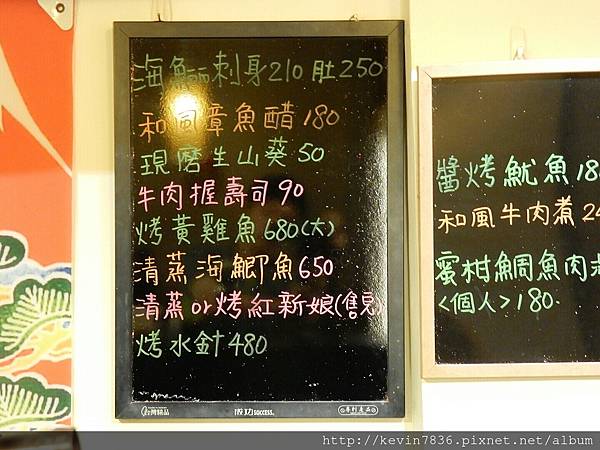 海鱺刺身210 肚250
和風章魚醋 180
現磨生山葵 50
牛肉握壽司 90
烤黃雞魚 680(大)
清蒸海鯽魚 650
清蒸or烤紅新娘(售完)
烤水針 480
台灣精品
成功 success.
專利產品
醬烤魷魚 18
和風牛肉煮 24
蜜柑鯛魚肉
<個人> 180
http://kevin7836.pixnet.net/album